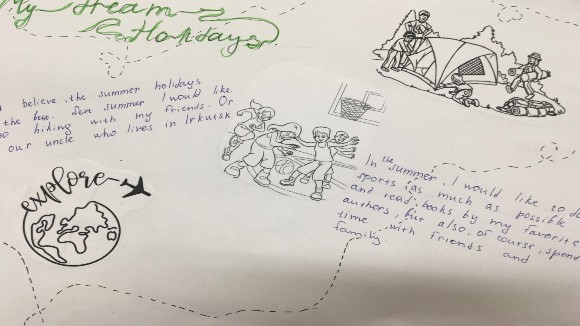 My Dream
Holidays
I believe, the summer holidays
the best. In summer I would like
hiking with my friends. Or
our uncle who lives in Irkutsk
explore
In the summer, I would like to do
sports as much as possible
and read books by my favorite
authors, but also, of course, spend
time with friends and
family.